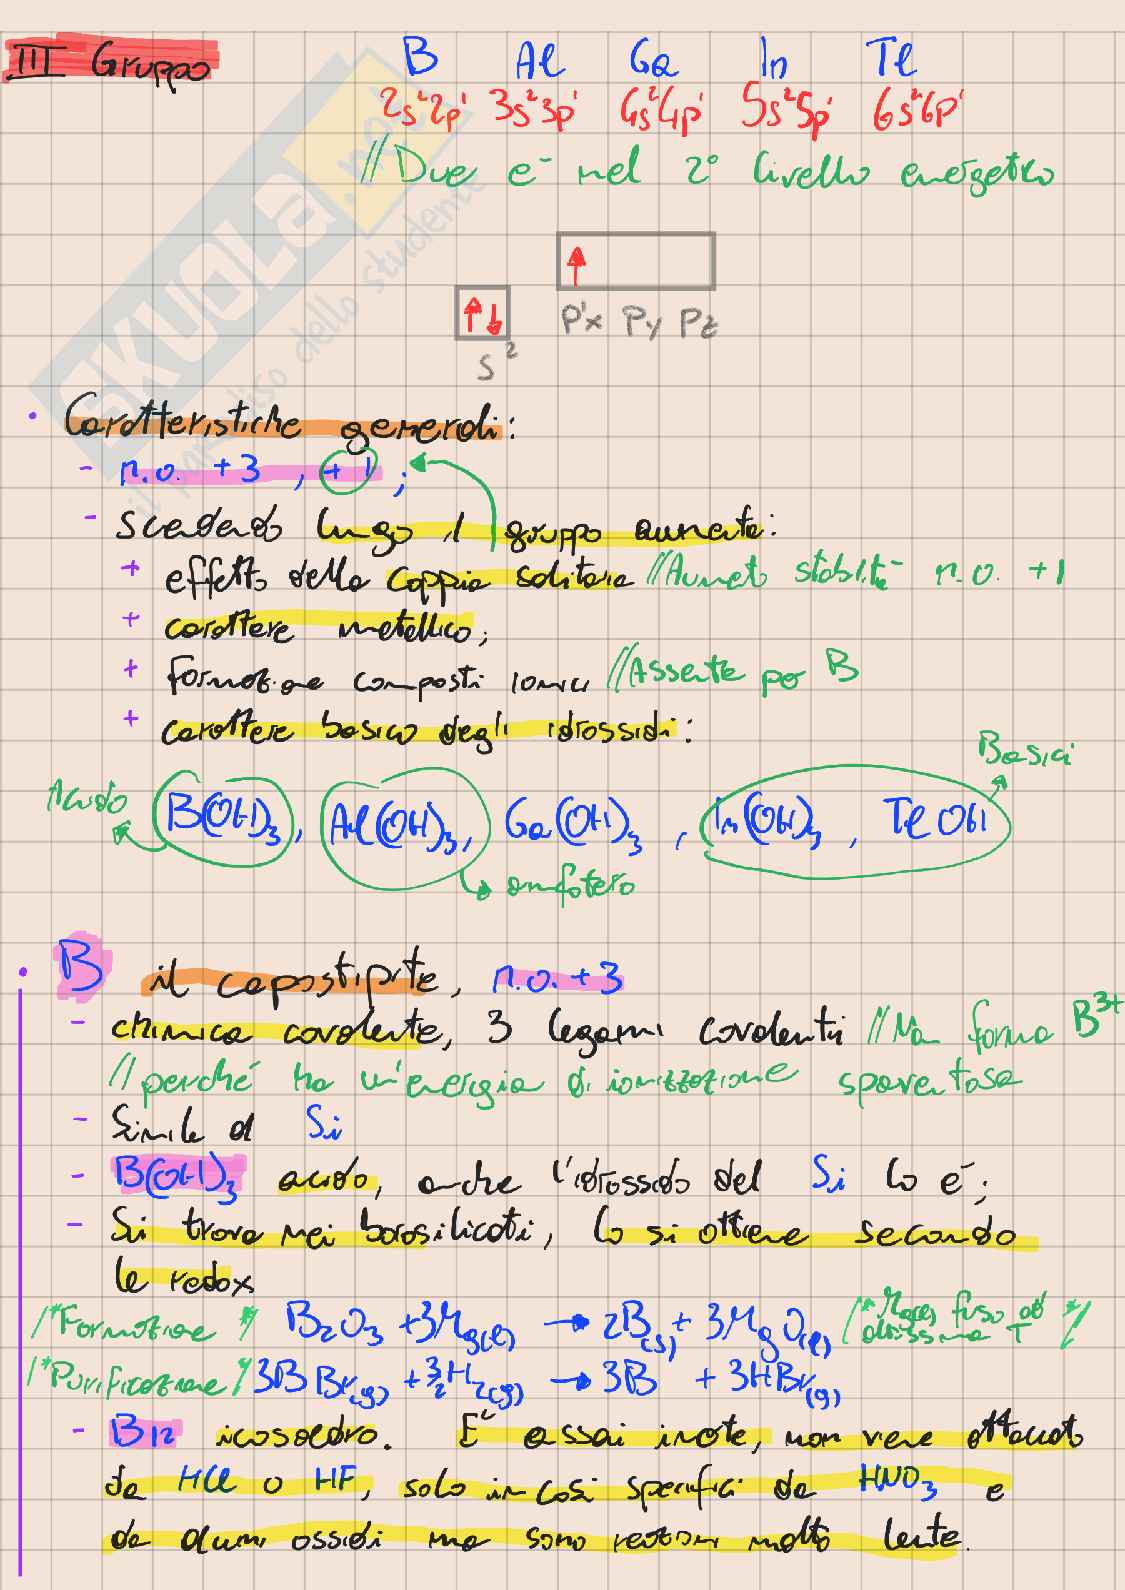 III Gruppo B Al Ga In Tl
2s²2p¹ 3s²3p¹ 4s²4p¹ 5s²5p¹ 6s²6p¹
//Due e⁻ nel 2° livello energetico
p¹x py pz
s²
• Caratteristiche generali:
- n.o. +3, +1;
- Scendendo lungo il gruppo aumenta:
+ effetto della coppia solitaria //Aumento stabilità n.o. +1
+ carattere metallico;
+ formazione composti ionici //Assente per B
+ carattere basico degli idrossidi:
Basici
Acido B(OH)₃, Al(OH)₃, Ga(OH)₃, In(OH)₃, TlOH
anfotero
• B il capostipite, n.o. +3
- chimica covalente, 3 legami covalenti //Non forma B³⁺
//perché ha un'energia di ionizzazione spaventosa
- Simile al Si
- B(OH)₃ acido, anche l'idrossido del Si lo è;
- Si trova nei borosilicati, lo si ottiene secondo
le redox
/*Formazione*/ B₂O₃ + 3Mg(l) → 2B(s) + 3MgO(l) /*Mg(l) fuso ad altissima T*/
/*Purificazione*/ 3BBr(g) + 3/2H₂(g) → 3B + 3HBr(g)
- B12 icosaedro. E' assai inerte, non viene attaccato
da HCl o HF, solo in casi specifici da HNO₃ e
da alcuni ossidi ma sono reazioni molto lente.
SKUOLA.net
il paradiso dello studente